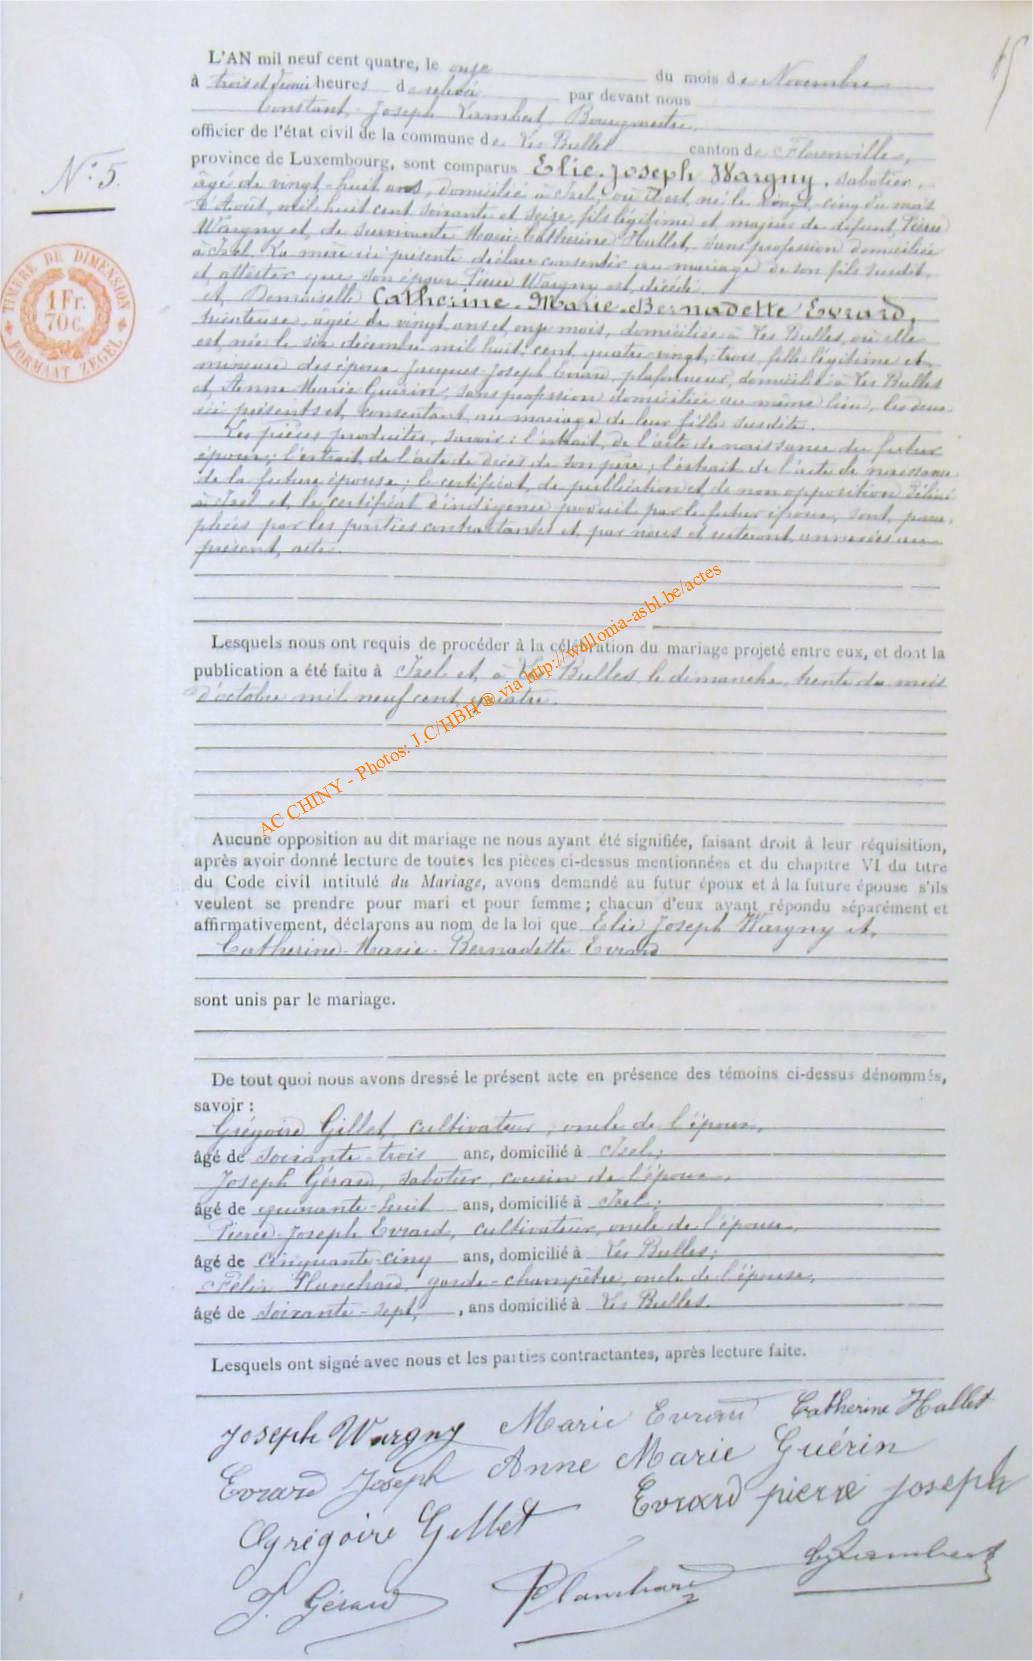 15
L'AN mil neuf cent quatre, le onze du mois de Novembre
à trois et demie heures de relevée par devant nous
Constant-Joseph Lambert, Bourgmestre,
officier de l'état civil de la commune de Les Bulles canton de Florenville,
N° 5.
province de Luxembourg, sont comparus Elie-Joseph Wargny, sabotier,
âgé de vingt-huit ans, domicilié à Izel, où il est né le vingt-cinq du mois
d'Août, mil huit cent soixante et seize, fils légitime et majeur de défunt Pierre
Wargny et de survivante Marie Catherine Hallet, sans profession domiciliée
à Izel. La mère ici présente déclare consentir au mariage de son fils susdit,
et attester que son époux Pierre Wargny est décédé.
Et Demoiselle Catherine-Marie-Bernadette Evrard,
âgée de vingt ans et onze mois, domiciliée à Les Bulles, où elle
est née le six décembre mil huit cent quatre-vingt-trois, fille légitime et
mineure des époux Jacques-Joseph Evrard, plafonneur, domicilié à Les Bulles
et Anne Marie Guérin, sans profession domiciliée au même lieu, les deux
ici présents et consentant au mariage de leur fille susdite.
Les pièces produites, savoir: l'extrait de l'acte de naissance du futur
époux; l'extrait de l'acte de décès de son père; l'extrait de l'acte de naissance
de la future épouse; le certificat de publication et de non opposition délivré
à Izel et le certificat d'indigence produit par le futur époux, sont para-
phées par les parties contractantes et par nous et resteront annexées au
présent acte.
TIMBRE DE DIMENSION
1 Fr. 70 c.
FORMAAT ZEGEL
Lesquels nous ont requis de procéder à la célébration du mariage projeté entre eux, et dont la
publication a été faite à Izel et à Les Bulles le dimanche trente du mois
d'octobre mil neuf cent quatre.
AC CHINY - Photos: J.C/HBH ® via http://wallonia-asbl.be/actes
Aucune opposition au dit mariage ne nous ayant été signifiée, faisant droit à leur réquisition,
après avoir donné lecture de toutes les pièces ci-dessus mentionnées et du chapitre VI du titre
du Code civil intitulé du Mariage, avons demandé au futur époux et à la future épouse s'ils
veulent se prendre pour mari et pour femme; chacun d'eux ayant répondu séparément et
affirmativement, déclarons au nom de la loi que Elie Joseph Wargny et
Catherine-Marie-Bernadette Evrard
sont unis par le mariage.
De tout quoi nous avons dressé le présent acte en présence des témoins ci-dessus dénommés,
savoir :
Grégoire Gillet, cultivateur, oncle de l'époux,
âgé de soixante-trois ans, domicilié à Izel;
Joseph Gérard, sabotier, cousin de l'époux,
âgé de quarante-huit ans, domicilié à Izel;
Pierre-Joseph Evrard, cultivateur, oncle de l'épouse,
âgé de cinquante-cinq ans, domicilié à Les Bulles;
Félix Planchard, garde-champêtre, oncle de l'épouse,
âgé de soixante-sept, ans domicilié à Les Bulles.
Lesquels ont signé avec nous et les parties contractantes, après lecture faite.
Joseph Wargny Marie Evrard Catherine Hallet
Evrard Joseph Anne Marie Guérin
Grégoire Gillet Evrard pierre joseph
J. Gérard Planchard Lambert